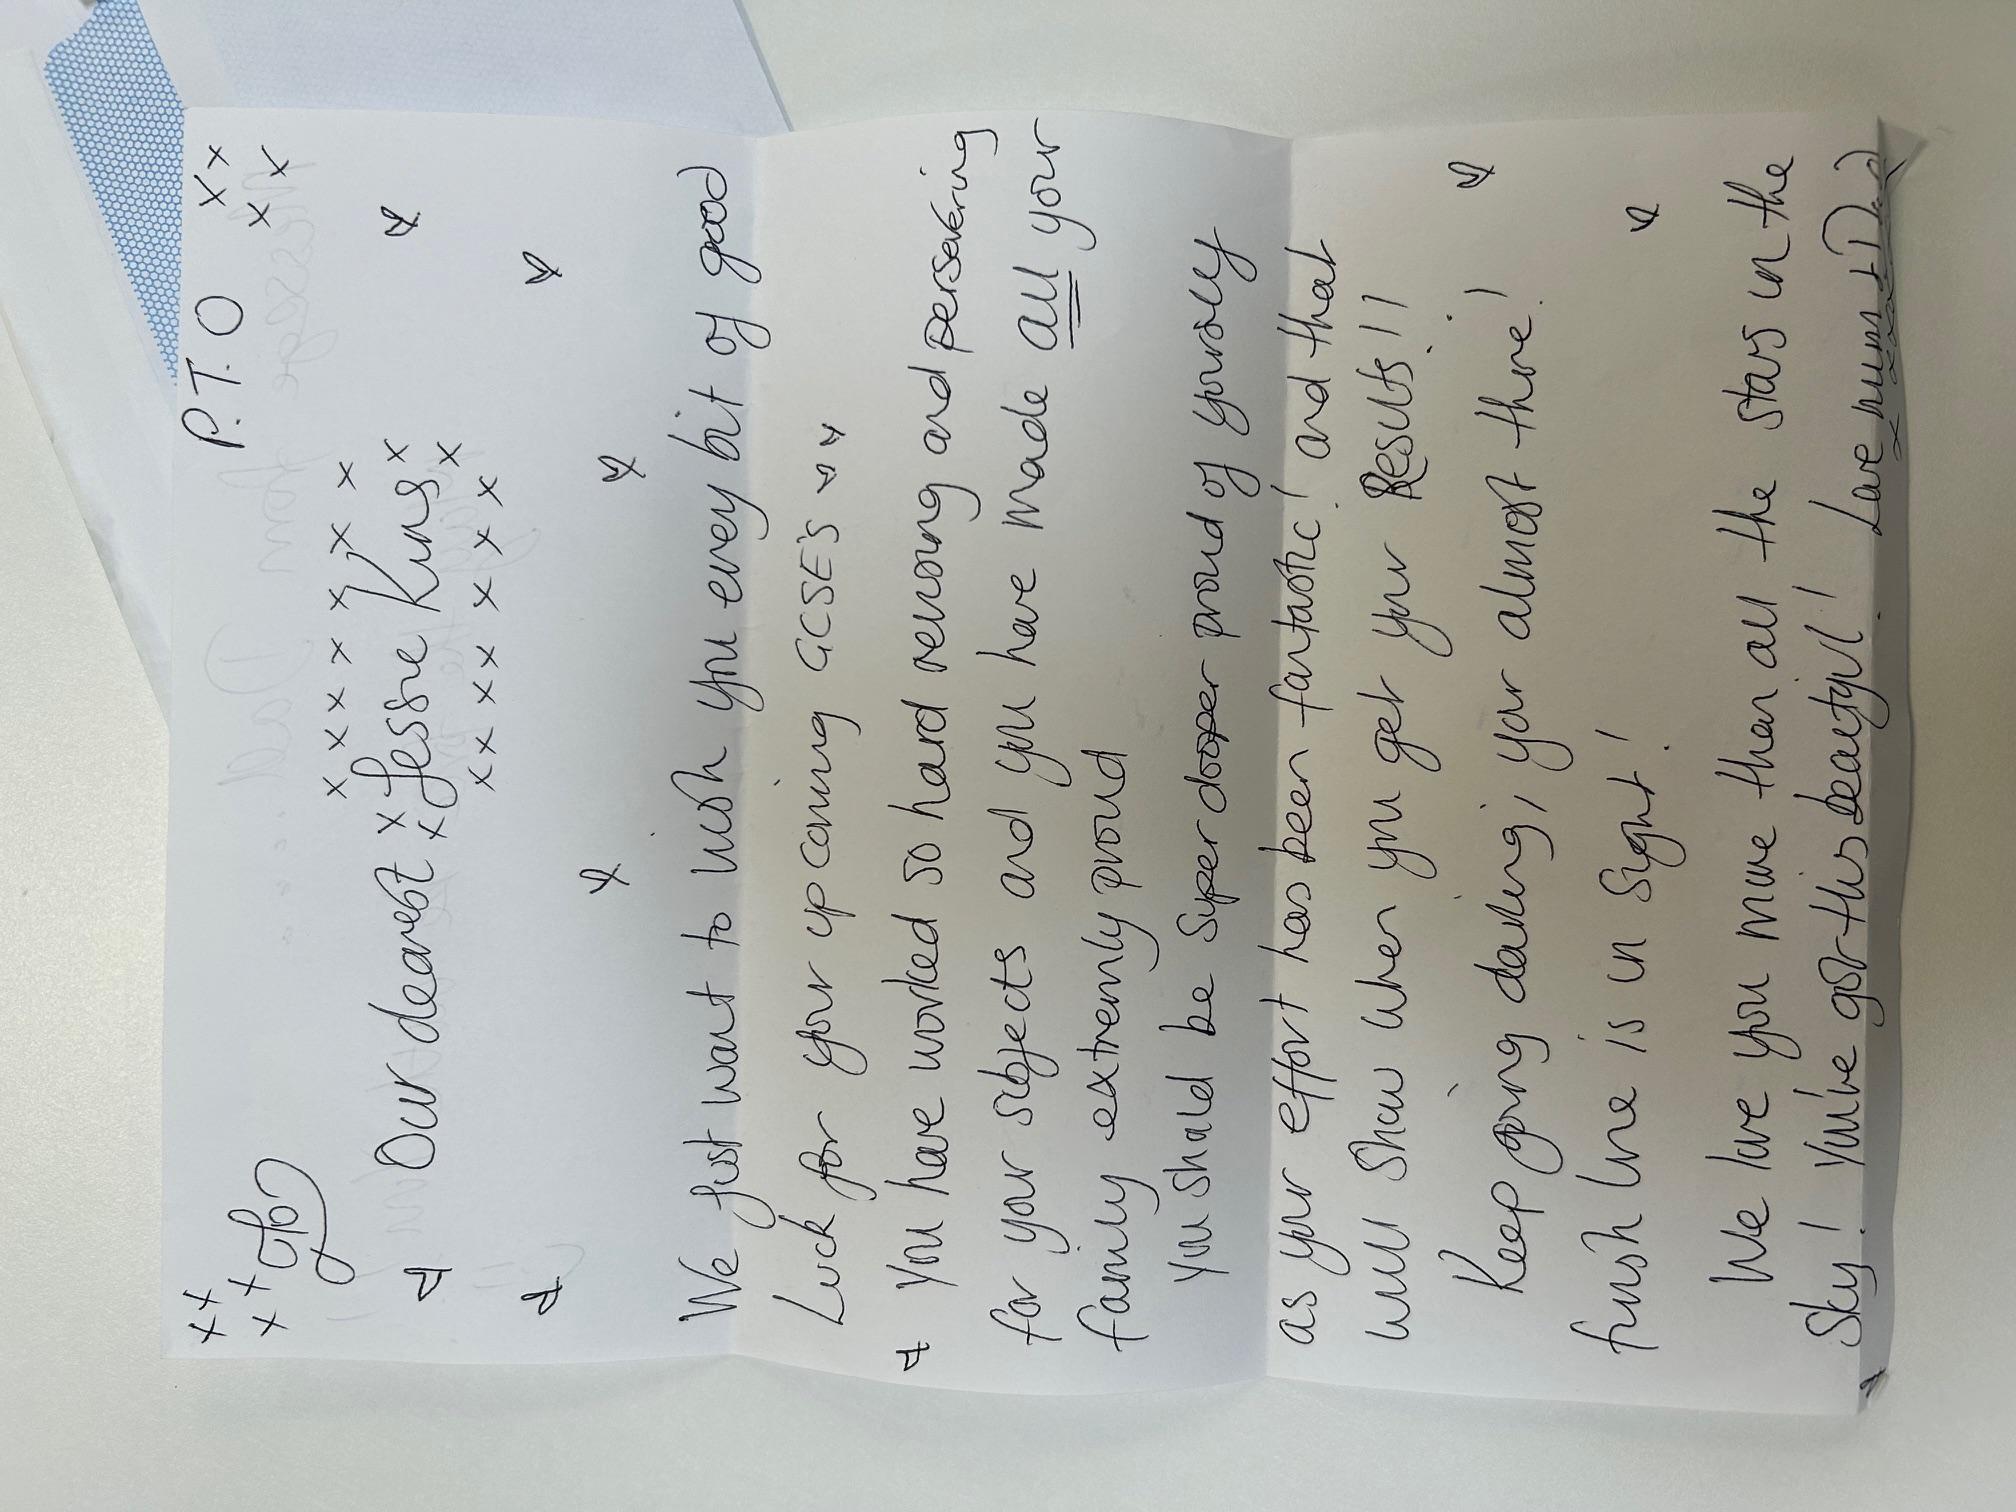 P.T.O xx
xx
xx
xx
xxxxxxx
Our dearest x Jessie Kins x
x x
xxxxxxx
We just want to wish you every bit of good
Luck for your upcoming GCSE's
You have worked so hard revising and persevering
for your subjects and you have made all your
family extremly proud
You should be super dooper proud of yourself
as your effort has been fantastic! and that
will show when you get your Results!!
Keep going darling, your almost there!
finish line is in sight!
We love you more than all the stars in the
Sky! You've got this beautiful! Love mum + Dad